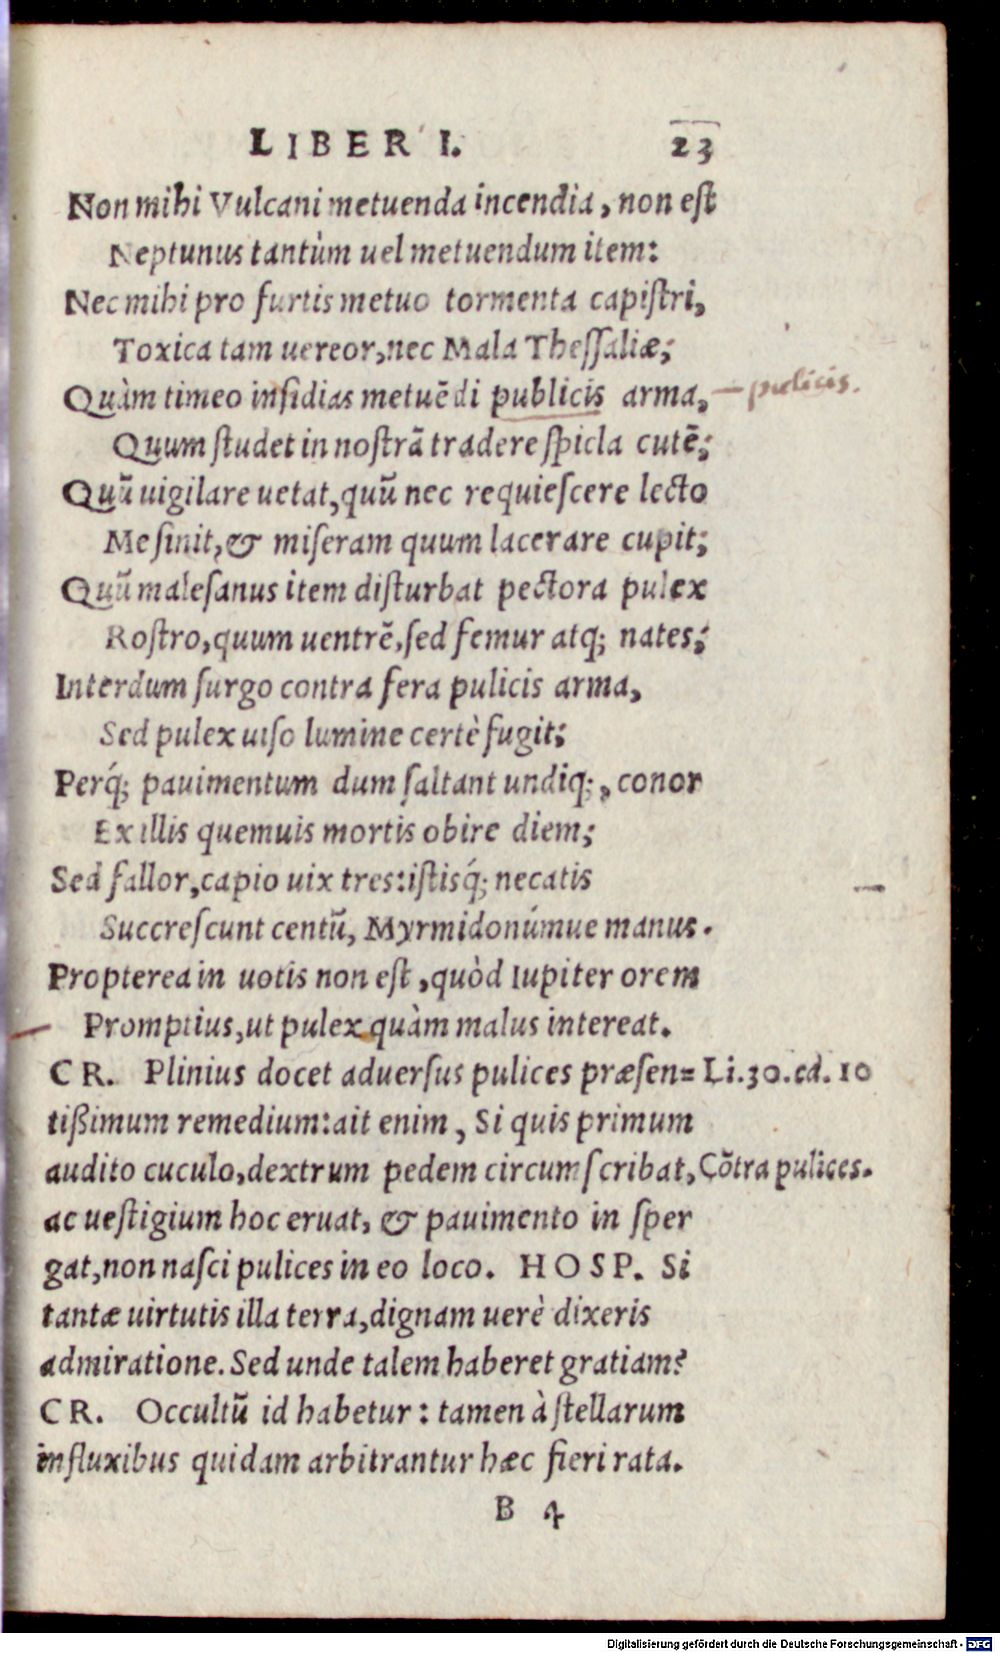 LIBER I. 23
Non mihi Vulcani metuenda incendia, non est
Neptunus tantùm uel metuendum item:
Nec mihi pro furtis metuo tormenta capistri,
Toxica tam uereor, nec Mala Thessaliæ;
Quàm timeo insidias metuēdi publicis arma, — pulicis.
Quum studet in nostrā tradere spicla cutē;
Quū uigilare uetat, quū nec requiescere lecto
Me sinit, & miseram quum lacerare cupit;
Quū malesanus item disturbat pectora pulex
Rostro, quum uentrē, sed femur atq; nates;
Interdum surgo contra fera pulicis arma,
Sed pulex uiso lumine certè fugit;
Perq́; pauimentum dum saltant undiq;, conor
Ex illis quemuis mortis obire diem;
Sed fallor, capio uix tres: istisq́; necatis
Succrescunt centū, Myrmidonúmue manus.
Propterea in uotis non est, quòd Iupiter orem
Promptius, ut pulex quàm malus intereat.
CR. Plinius docet aduersus pulices præsen= Li.30.ca. 10
tißimum remedium: ait enim, Si quis primum
audito cuculo, dextrum pedem circumscribat, Cōtra pulices.
ac uestigium hoc eruat, & pauimento in sper
gat, non nasci pulices in eo loco. HOSP. Si
tantæ uirtutis illa terra, dignam uerè dixeris
admiratione. Sed unde talem haberet gratiam?
CR. Occultū id habetur: tamen à stellarum
influxibus quidam arbitrantur hæc fieri rata.
B 4
Digitalisierung gefördert durch die Deutsche Forschungsgemeinschaft - DFG